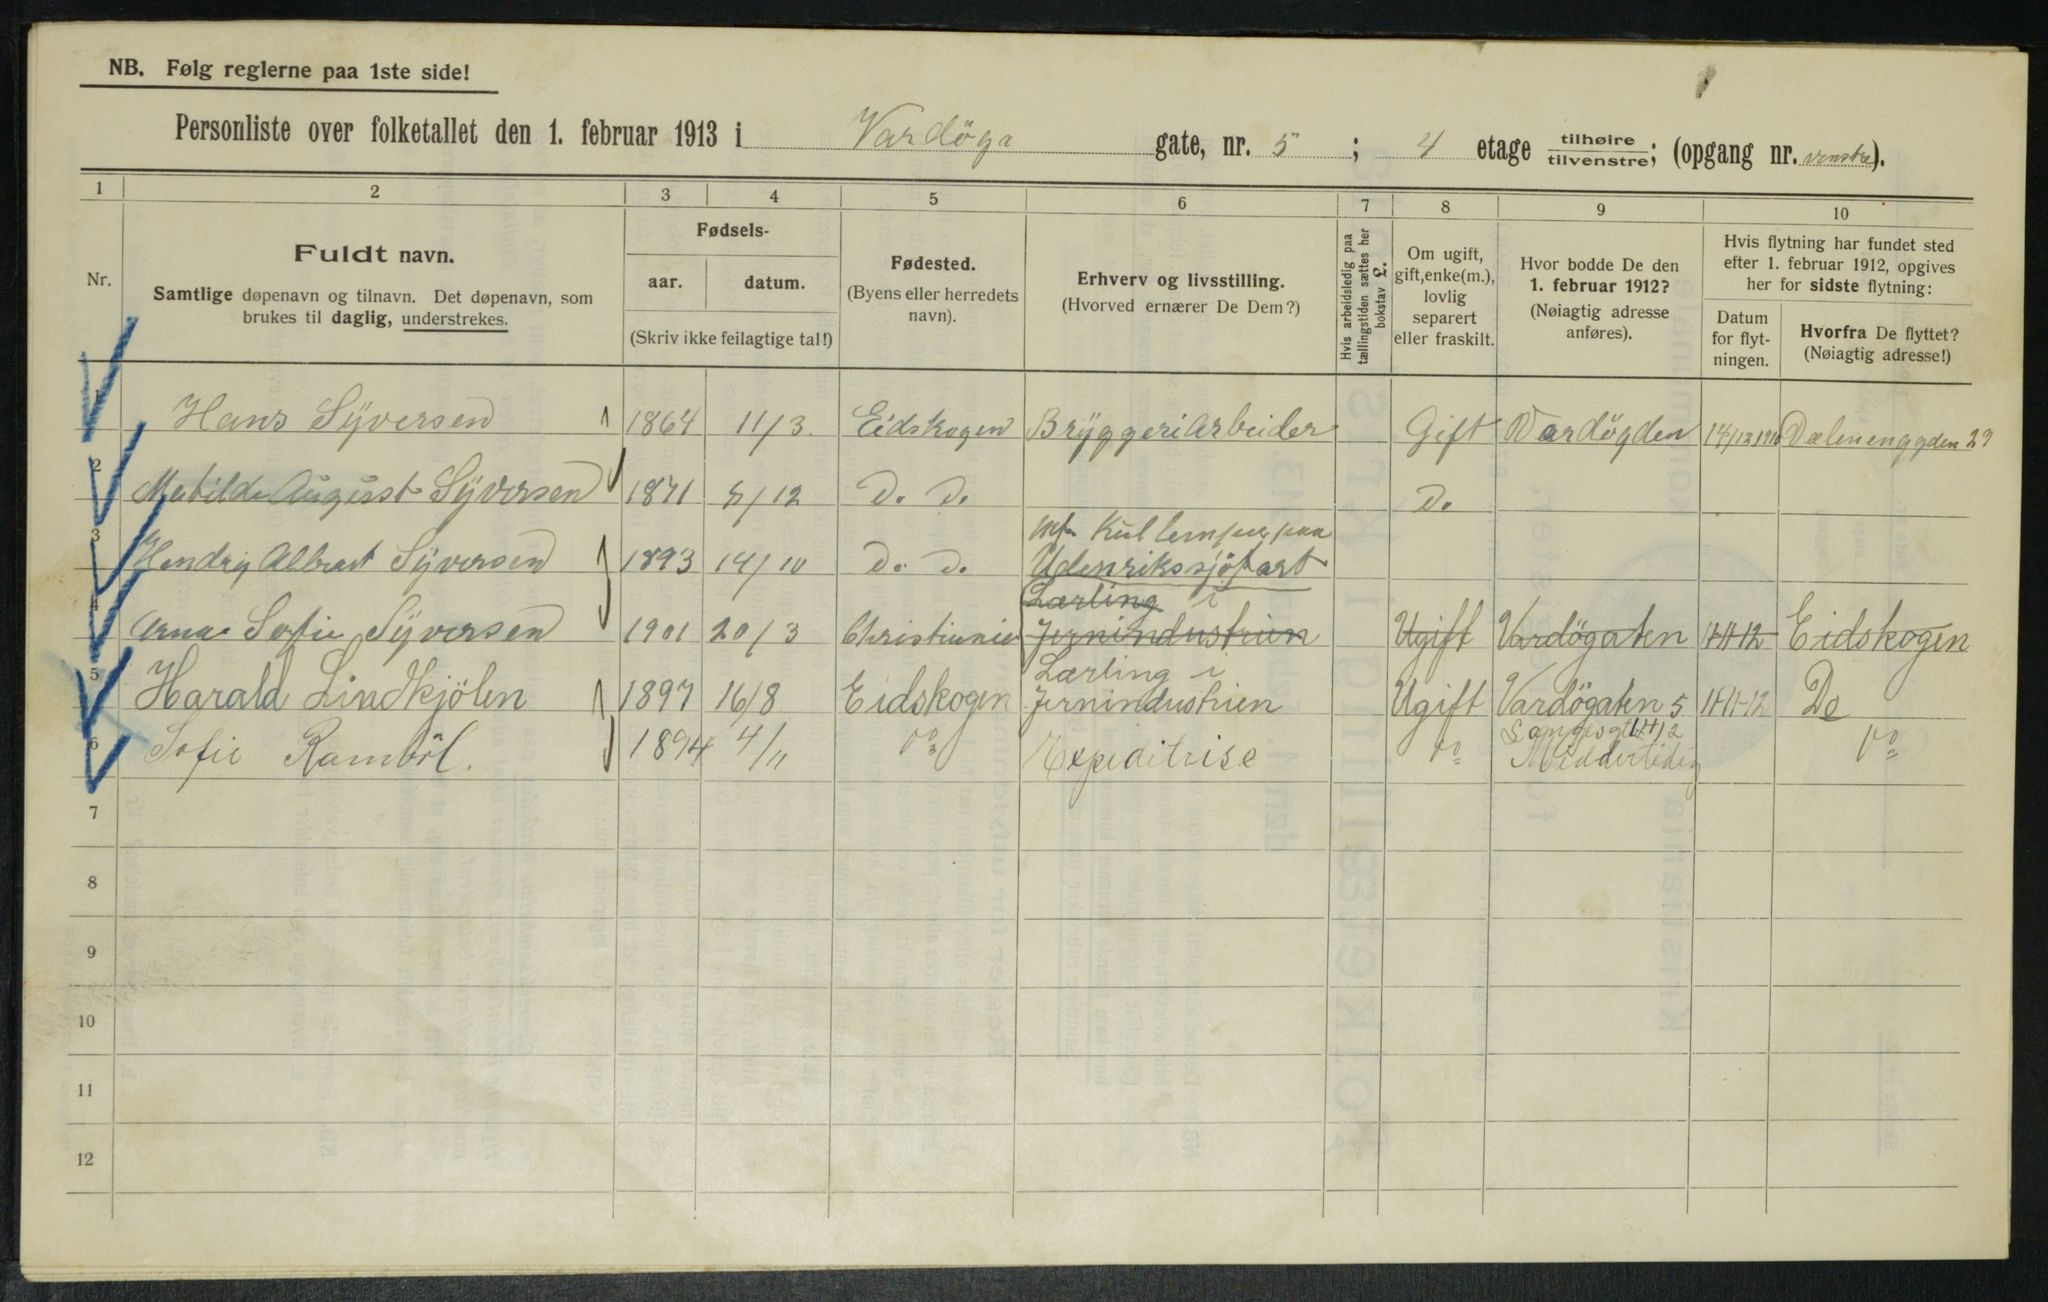 NB. Følg reglerne paa 1ste side!
Personliste over folketallet den 1. februar 1913 i Vardöga gate, nr. 5 ; 4 etage tilhøire tilvenstre; (opgang nr. venstre).
1 2 3 4 5 6 7 8 9 10
Nr.
Fuldt navn.
Samtlige døpenavn og tilnavn. Det døpenavn, som
brukes til daglig, understrekes.
Fødsels-
aar. datum.
(Skriv ikke feilagtige tal!)
Fødested.
(Byens eller herredets
navn).
Erhverv og livsstilling.
(Hvorved ernærer De Dem?)
Hvis arbeidsledig paa
tællingstiden sættes her
bokstav L.
Om ugift,
gift, enke(m.),
lovlig
separert
eller fraskilt.
Hvor bodde De den
1. februar 1912?
(Nøiagtig adresse
anføres).
Hvis flytning har fundet sted
efter 1. februar 1912, opgives
her for sidste flytning:
Datum
for flyt-
ningen.
Hvorfra De flyttet?
(Nøiagtig adresse!)
1 Hans Syversen 1864 11/3 Eidskogen Bryggeriarbeider Gift Vardögden 14/12 1910 Dælenenggden 29
2 Matilde August Syversen 1871 5/12 D. D. D.
3 Hendrig Albert Syversen 1893 14/10 D. D. Kullemper paa
Udenrikssjöfart
4 Erna Sofie Syversen 1901 20/3 Christiania Lærling i
Jernindustrien Ugift Vardögaten 11-11-12 Eidskogen
5 Harald Lindkjölen 1897 16/8 Eidskogen Lærling i
Jernindustrien Ugift Vardögaten 5 11-11-12 Do
6 Sofie Ramböl. 1894 4/11 Do Expeditrise Do
Middertidig Do
7
8
9
10
11
12